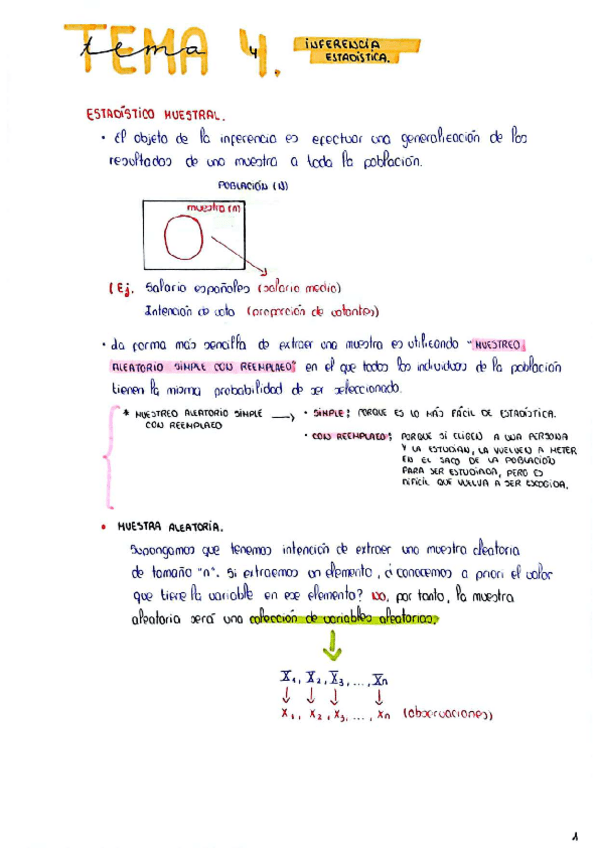 TEMA 4.
tema 4
INFERENCIA
ESTADÍSTICA.
ESTADÍSTICO MUESTRAL.
• El objeto de la inferencia es efectuar una generalización de los
resultados de una muestra a toda la población.
POBLACIÓN (N)
muestra (n)
(Ej. Salario españoles (salario medio)
Intención de voto (proporción de votantes)
• La forma más sencilla de extraer una muestra es utilizando "MUESTREO
ALEATORIO SIMPLE CON REEMPLAZO", en el que todos los individuos de la población
tienen la misma probabilidad de ser seleccionado.
* MUESTREO ALEATORIO SIMPLE → • SIMPLE: PORQUE ES LO MÁS FÁCIL DE ESTADÍSTICA.
CON REEMPLAZO
• CON REEMPLAZO: PORQUE SI ELIGEN A UNA PERSONA
Y LA ESTUDIAN, LA VUELVEN A METER
EN EL SACO DE LA POBLACIÓN
PARA SER ESTUDIADA, PERO ES
DIFÍCIL QUE VUELVA A SER ESCOGIDA.
• MUESTRA ALEATORIA.
Supongamos que tenemos intención de extraer una muestra aleatoria
de tamaño "n". Si extraemos un elemento, ¿conocemos a priori el valor
que tiene la variable en ese elemento? NO, por tanto, la muestra
aleatoria será una colección de variables aleatorias.
X₁, X₂, X₃, ..., Xn
↓ ↓ ↓ ↓
x₁, x₂, x₃, ..., xn (observaciones)
1